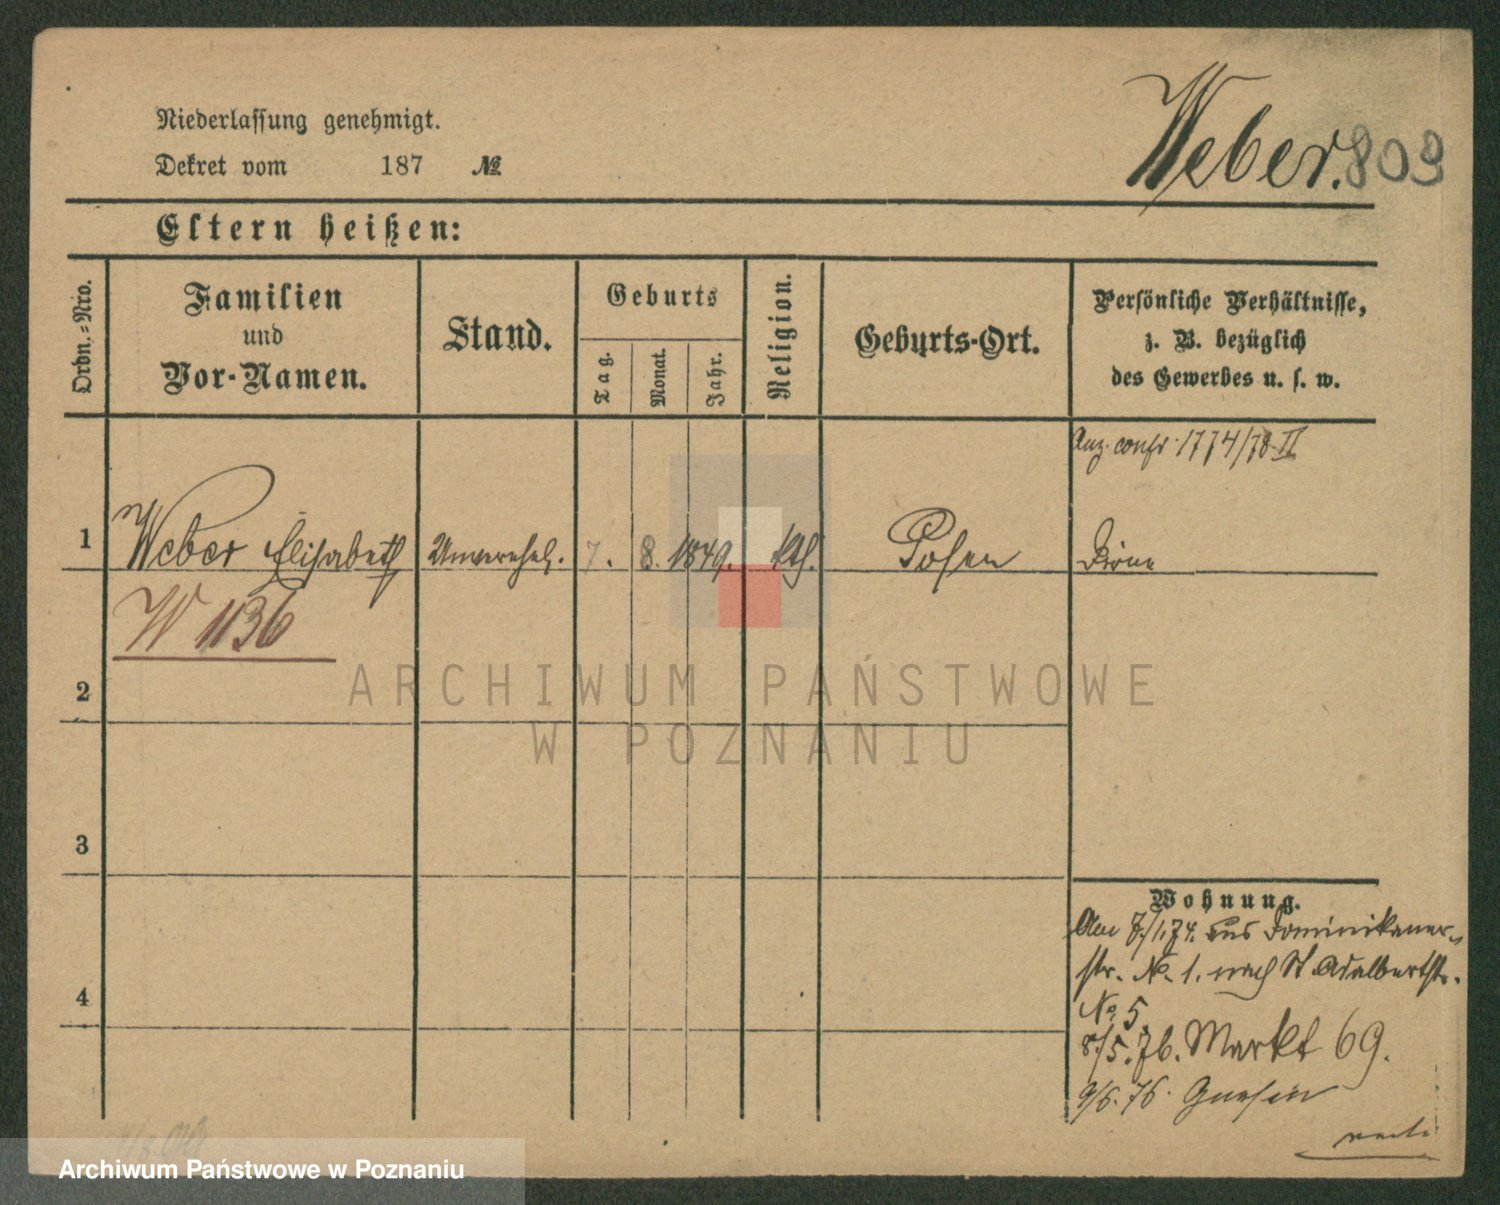 Weber. 803
Niederlassung genehmigt.
Dekret vom 187 №
Eltern heißen:
Ordn.=Nro.
Familien
und
Vor-Namen.
Stand.
Geburts
Tag.
Monat.
Jahr.
Religion.
Geburts-Ort.
Persönliche Verhältnisse,
z. B. bezüglich
des Gewerbes u. s. w.
1774/78 II
1 Weber Elisabeth Unverehel. 7. 8. 1849. kth. Posen Dirne
W 1136
2
3
4
Wohnung.
Am 7/1.74. aus Dominikaner-
str. No. 1. nach St Adalbertstr.
No. 5
8/5.76. Markt 69.
9/6.76. Gnesen
ARCHIWUM PAŃSTWOWE
W POZNANIU
Archiwum Państwowe w Poznaniu